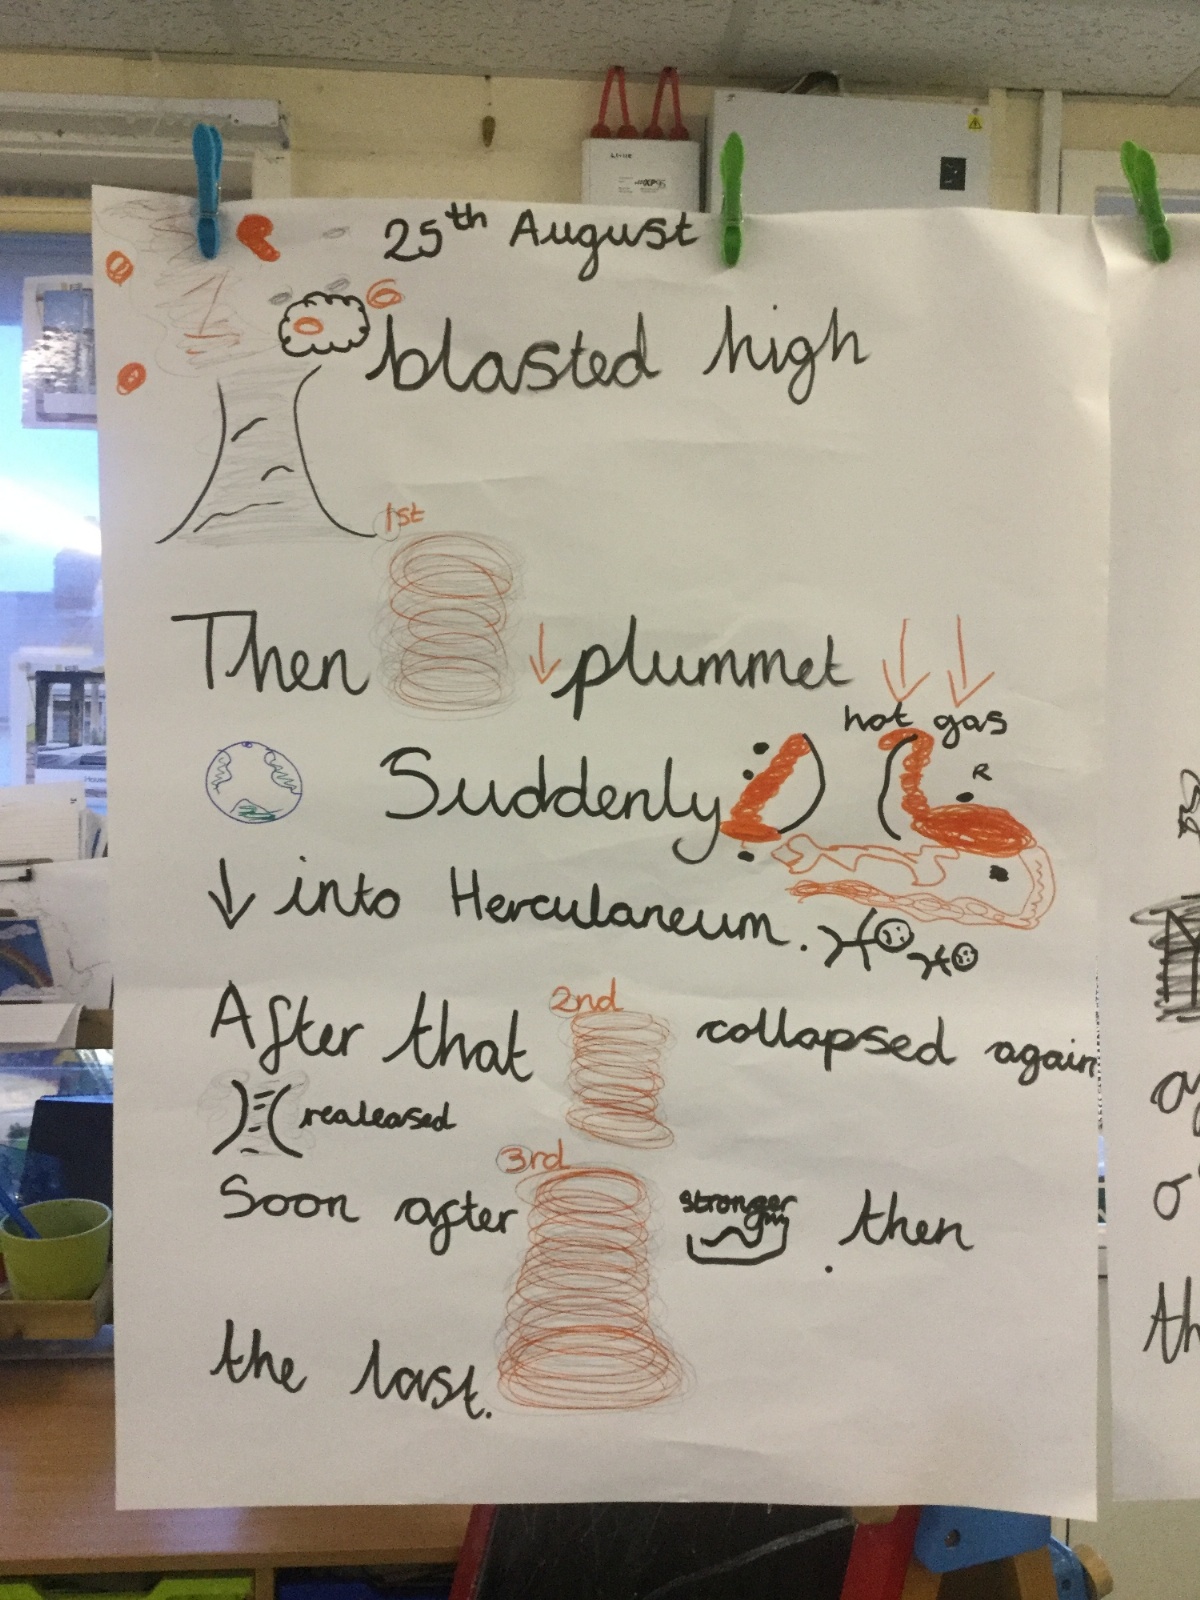 25th August
blasted high
1st
Then plummet
hot gas
R
Suddenly
into Herculaneum.
2nd
After that collapsed again
realeased
3rd
Soon after stronger . then
the last.